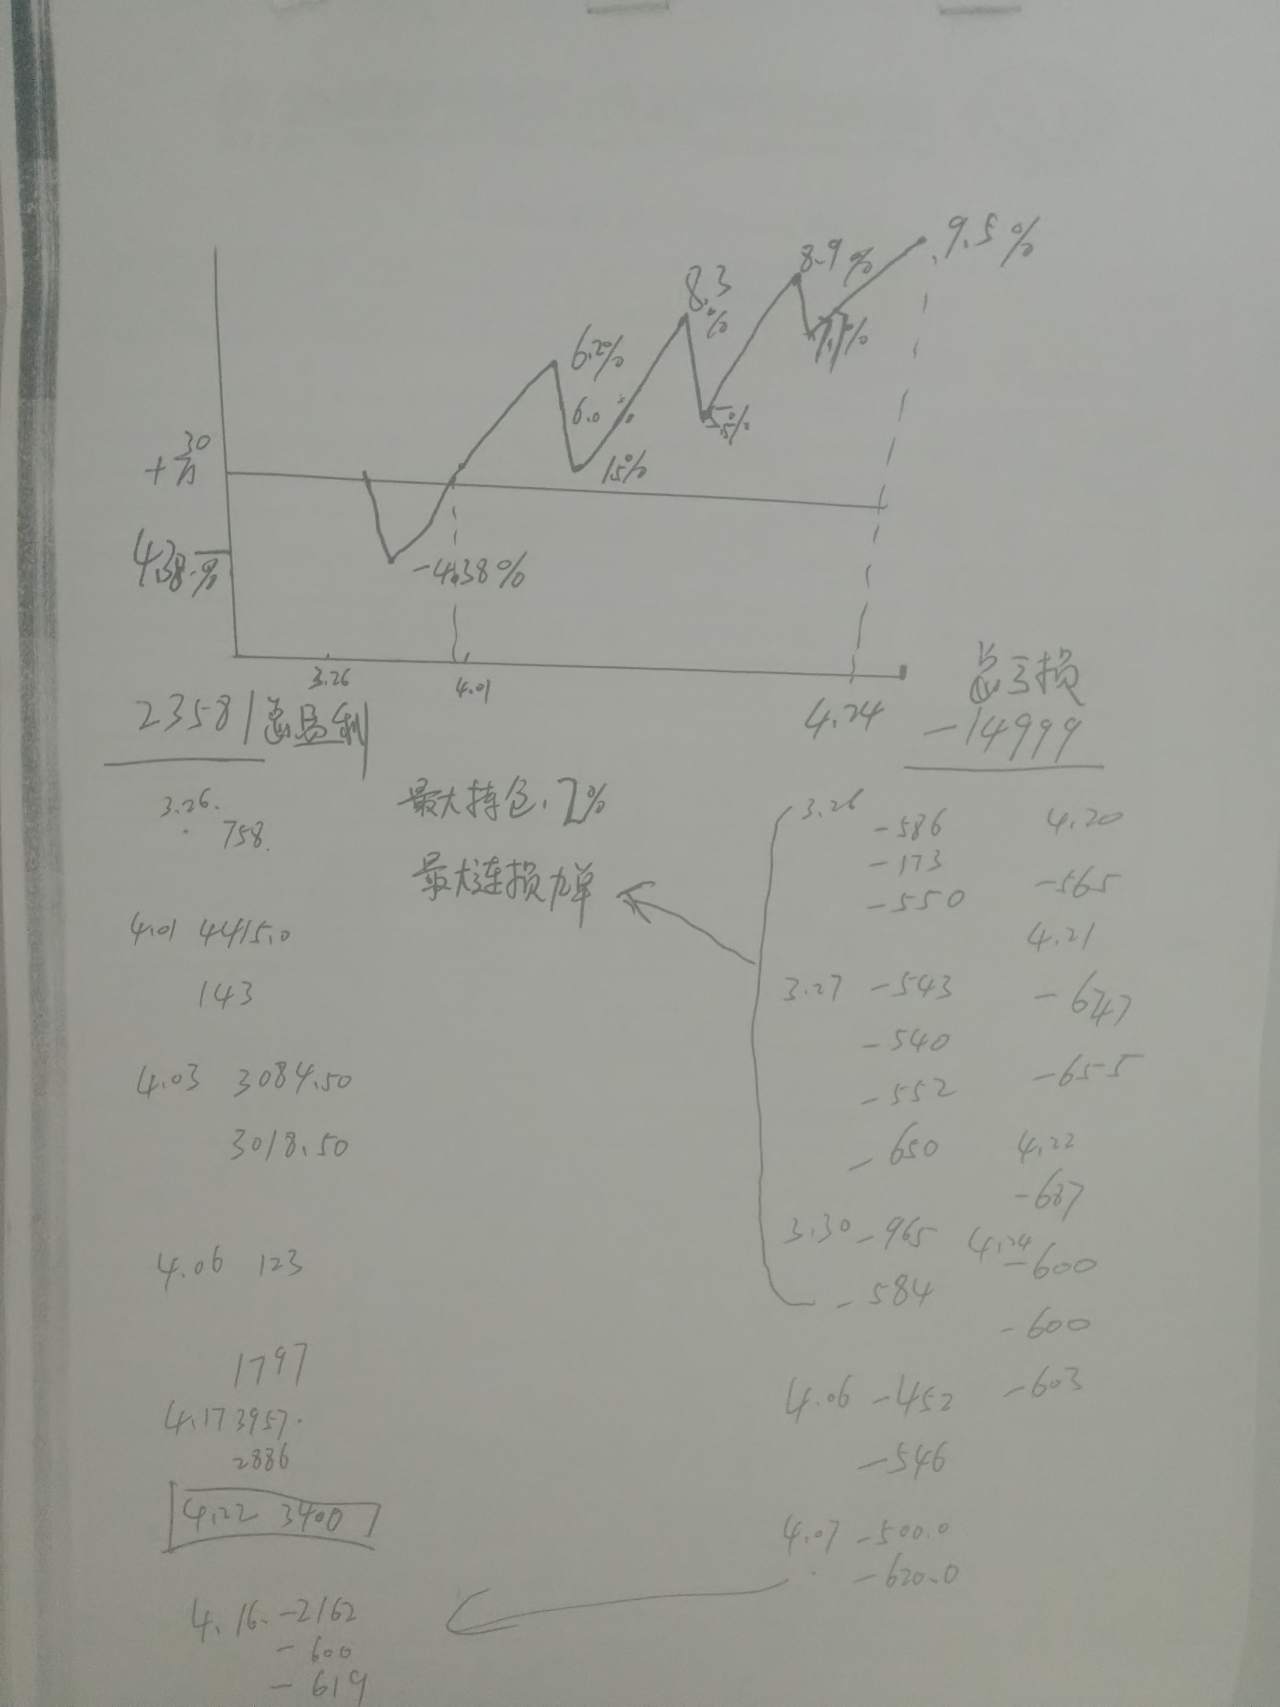 9.5%
8.9%
8.3
%
7.7%
6.2%
6.0%
5.5%
15%
+30
万
4.38%
-4.38%
3.26
4.01
4.24
23581总盈利
总亏损
-14999
最大持仓.2%
最大连损九单
3.26.
758.
4.01 4415.0
143
4.03 3084.50
3018.50
4.06 123
1797
4.17 3957.
2886
4.22 3400
4.16. -2162
-600
-619
3.26 -586
-173
-550
3.27 -543
-540
-552
-650
3.30 -965
-584
4.06 -452
-546
4.07 -500.0
-620.0
4.20
-565
4.21
-655
4.22
-687
4.24
-600
-600
-603